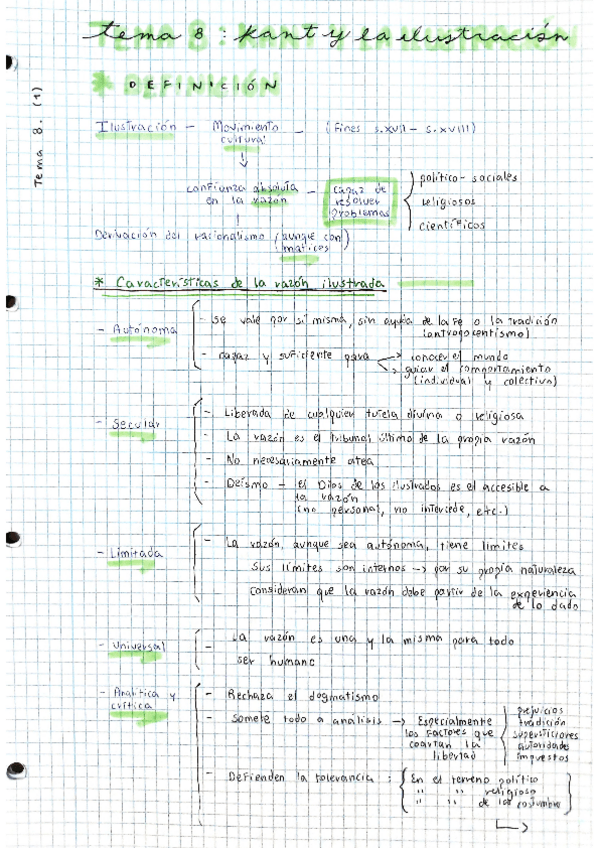 Tema 8: Kant y la ilustración
Tema 8. (1)
* DEFINICIÓN
Ilustración - Movimiento cultural - (Fines s.XVII - s.XVIII)
↓
confianza absoluta en la razón - capaz de resolver problemas
político-sociales
religiosos
científicos
Derivación del racionalismo (aunque con matices)
* Características de la razón ilustrada
- Autónoma
- Se vale por sí misma, sin ayuda de la Fe o la tradición
(antropocentismo)
- capaz y suficiente para → conocer el mundo
→ guiar el comportamiento
(individual y colectivo)
- Secular
- Liberada de cualquier tutela divina o religiosa
- La razón es el tribunal último de la propia razón
- No necesariamente atea
- Deísmo - el Dios de los ilustrados es el accesible a
la razón
(no personal, no intercede, etc.)
- Limitada
- La razón, aunque sea autónoma, tiene límites
sus límites son internos → por su propia naturaleza
consideran que la razón debe partir de la experiencia
de lo dado
- Universal
- La razón es una y la misma para todo
ser humano
- Analítica y
crítica
- Rechaza el dogmatismo
- Somete todo a análisis → Especialmente
los factores que
coartan la
libertad
prejuicios
tradición
supersticiones
autoridades
impuestos
- Defienden la tolerancia: En el terreno político
" " " religioso
" " de las costumbres